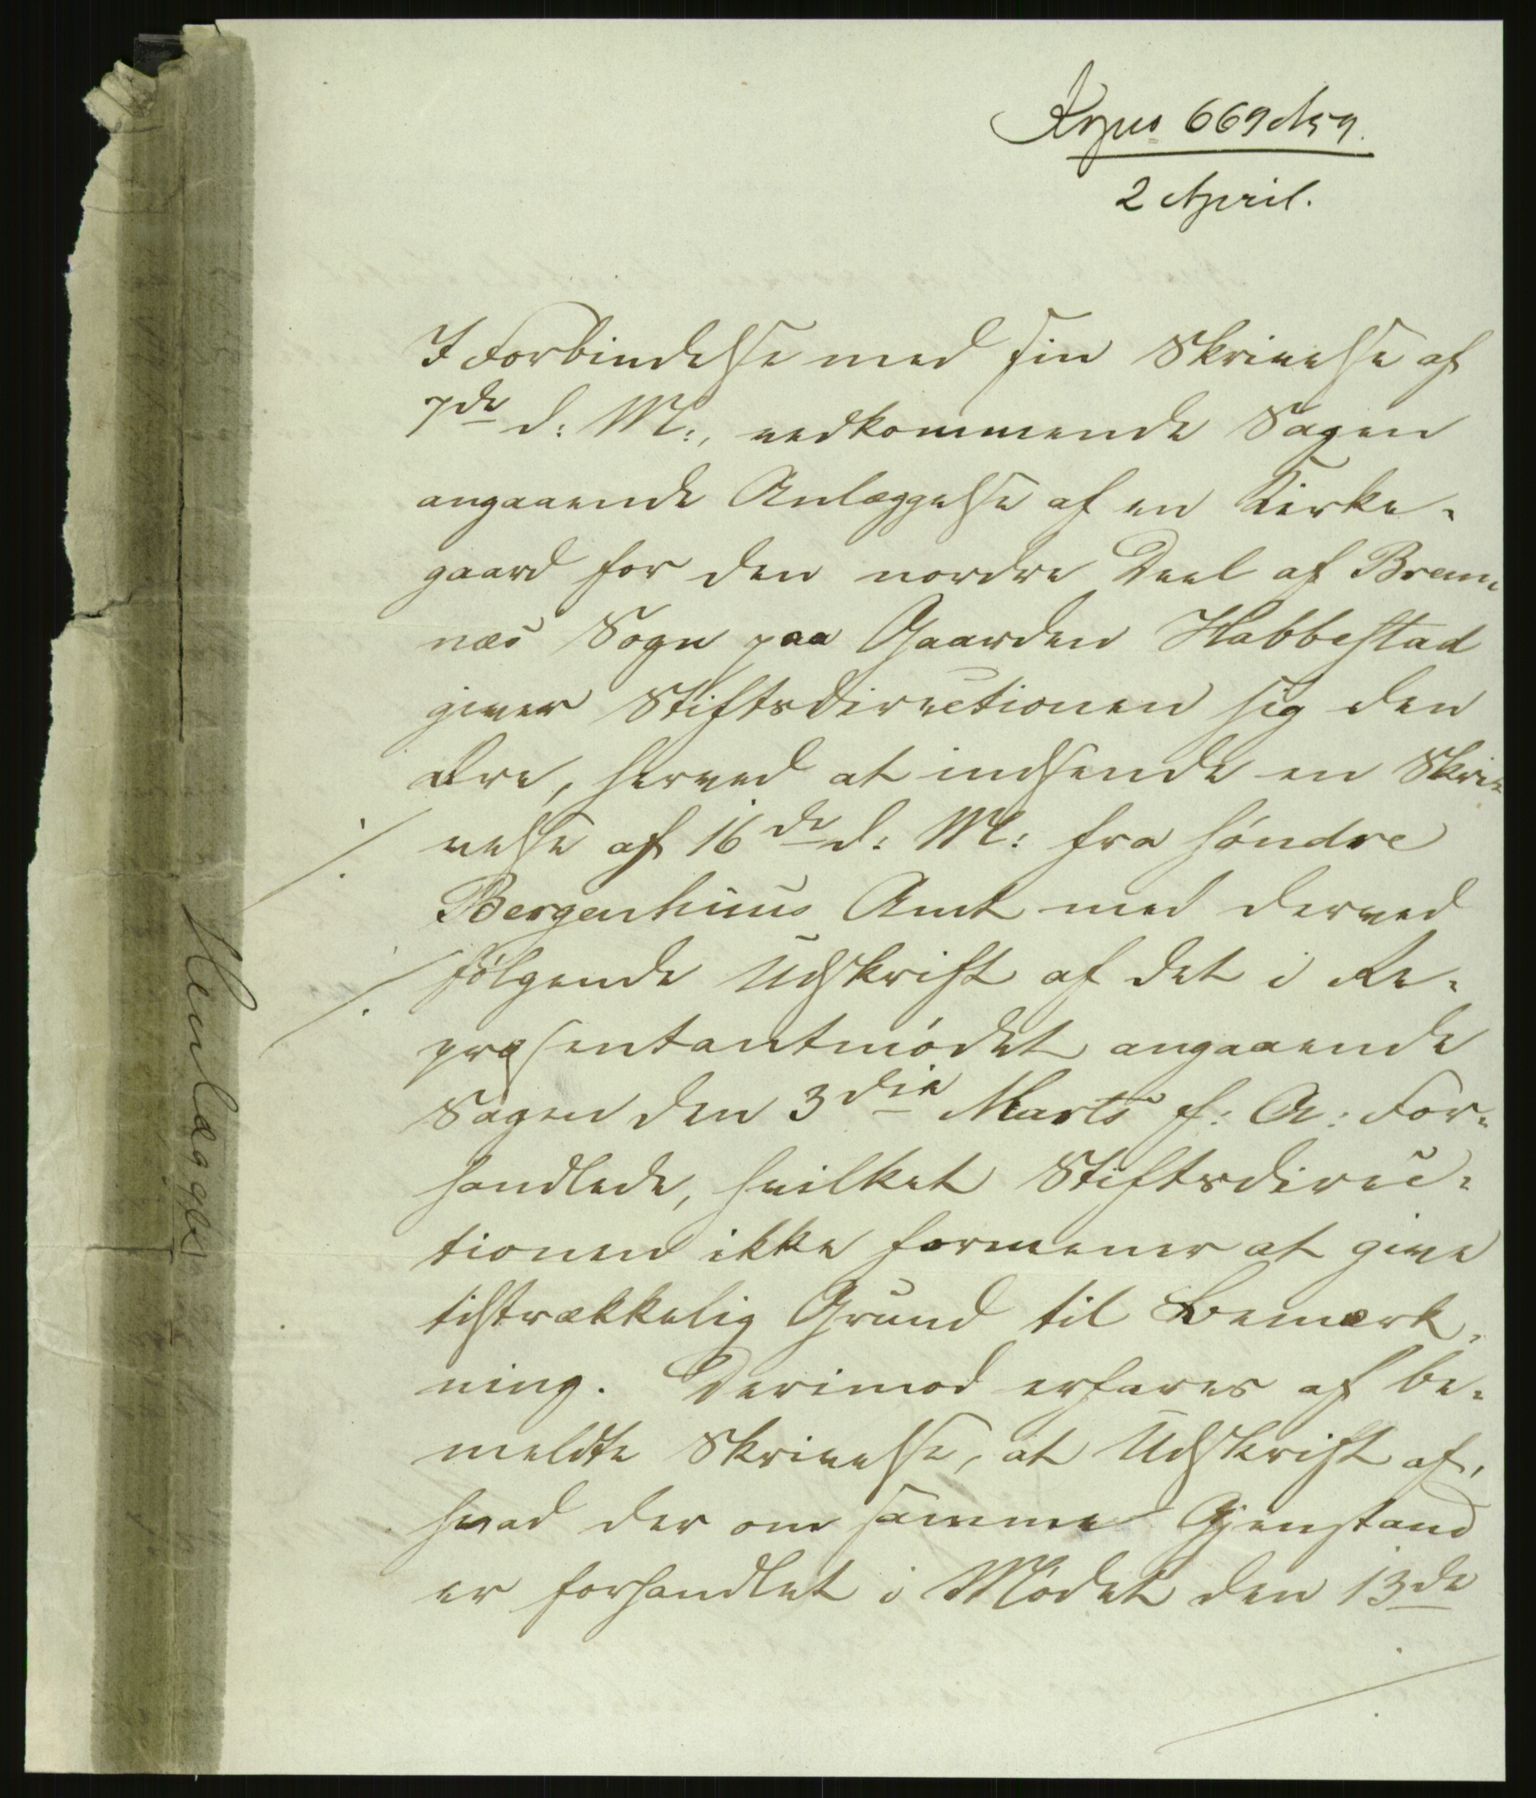 Kopus 669 A 59.
2 April.
I Forbindelse med sin Skrivelse af
7de d: M:, vedkommende Sagen
angaaende Anlæggelse af en Kirke-
gaard for den nordre Deel af Brem-
næs Sogn paa Gaarden Habbestad
giver Stiftsdirectionen sig den
Ære, herved at indsende en Skri-
velse af 16de d: M: fra søndre
Bergenhuus Amt med derved
følgende Udskrift af det i Re-
præsentantmødet angaaende
Sagen den 3die Marts f: A: For-
handlede, hvilket Stiftsdirec-
tionen ikke formener at give
tilstrækkelig Grund til Bemærk-
ning. Derimod erfares af be-
meldte Skrivelse, at Udskrift af,
hvad der om samme Gjenstand
er forhandlet i Mødet den 13de
Henlægges